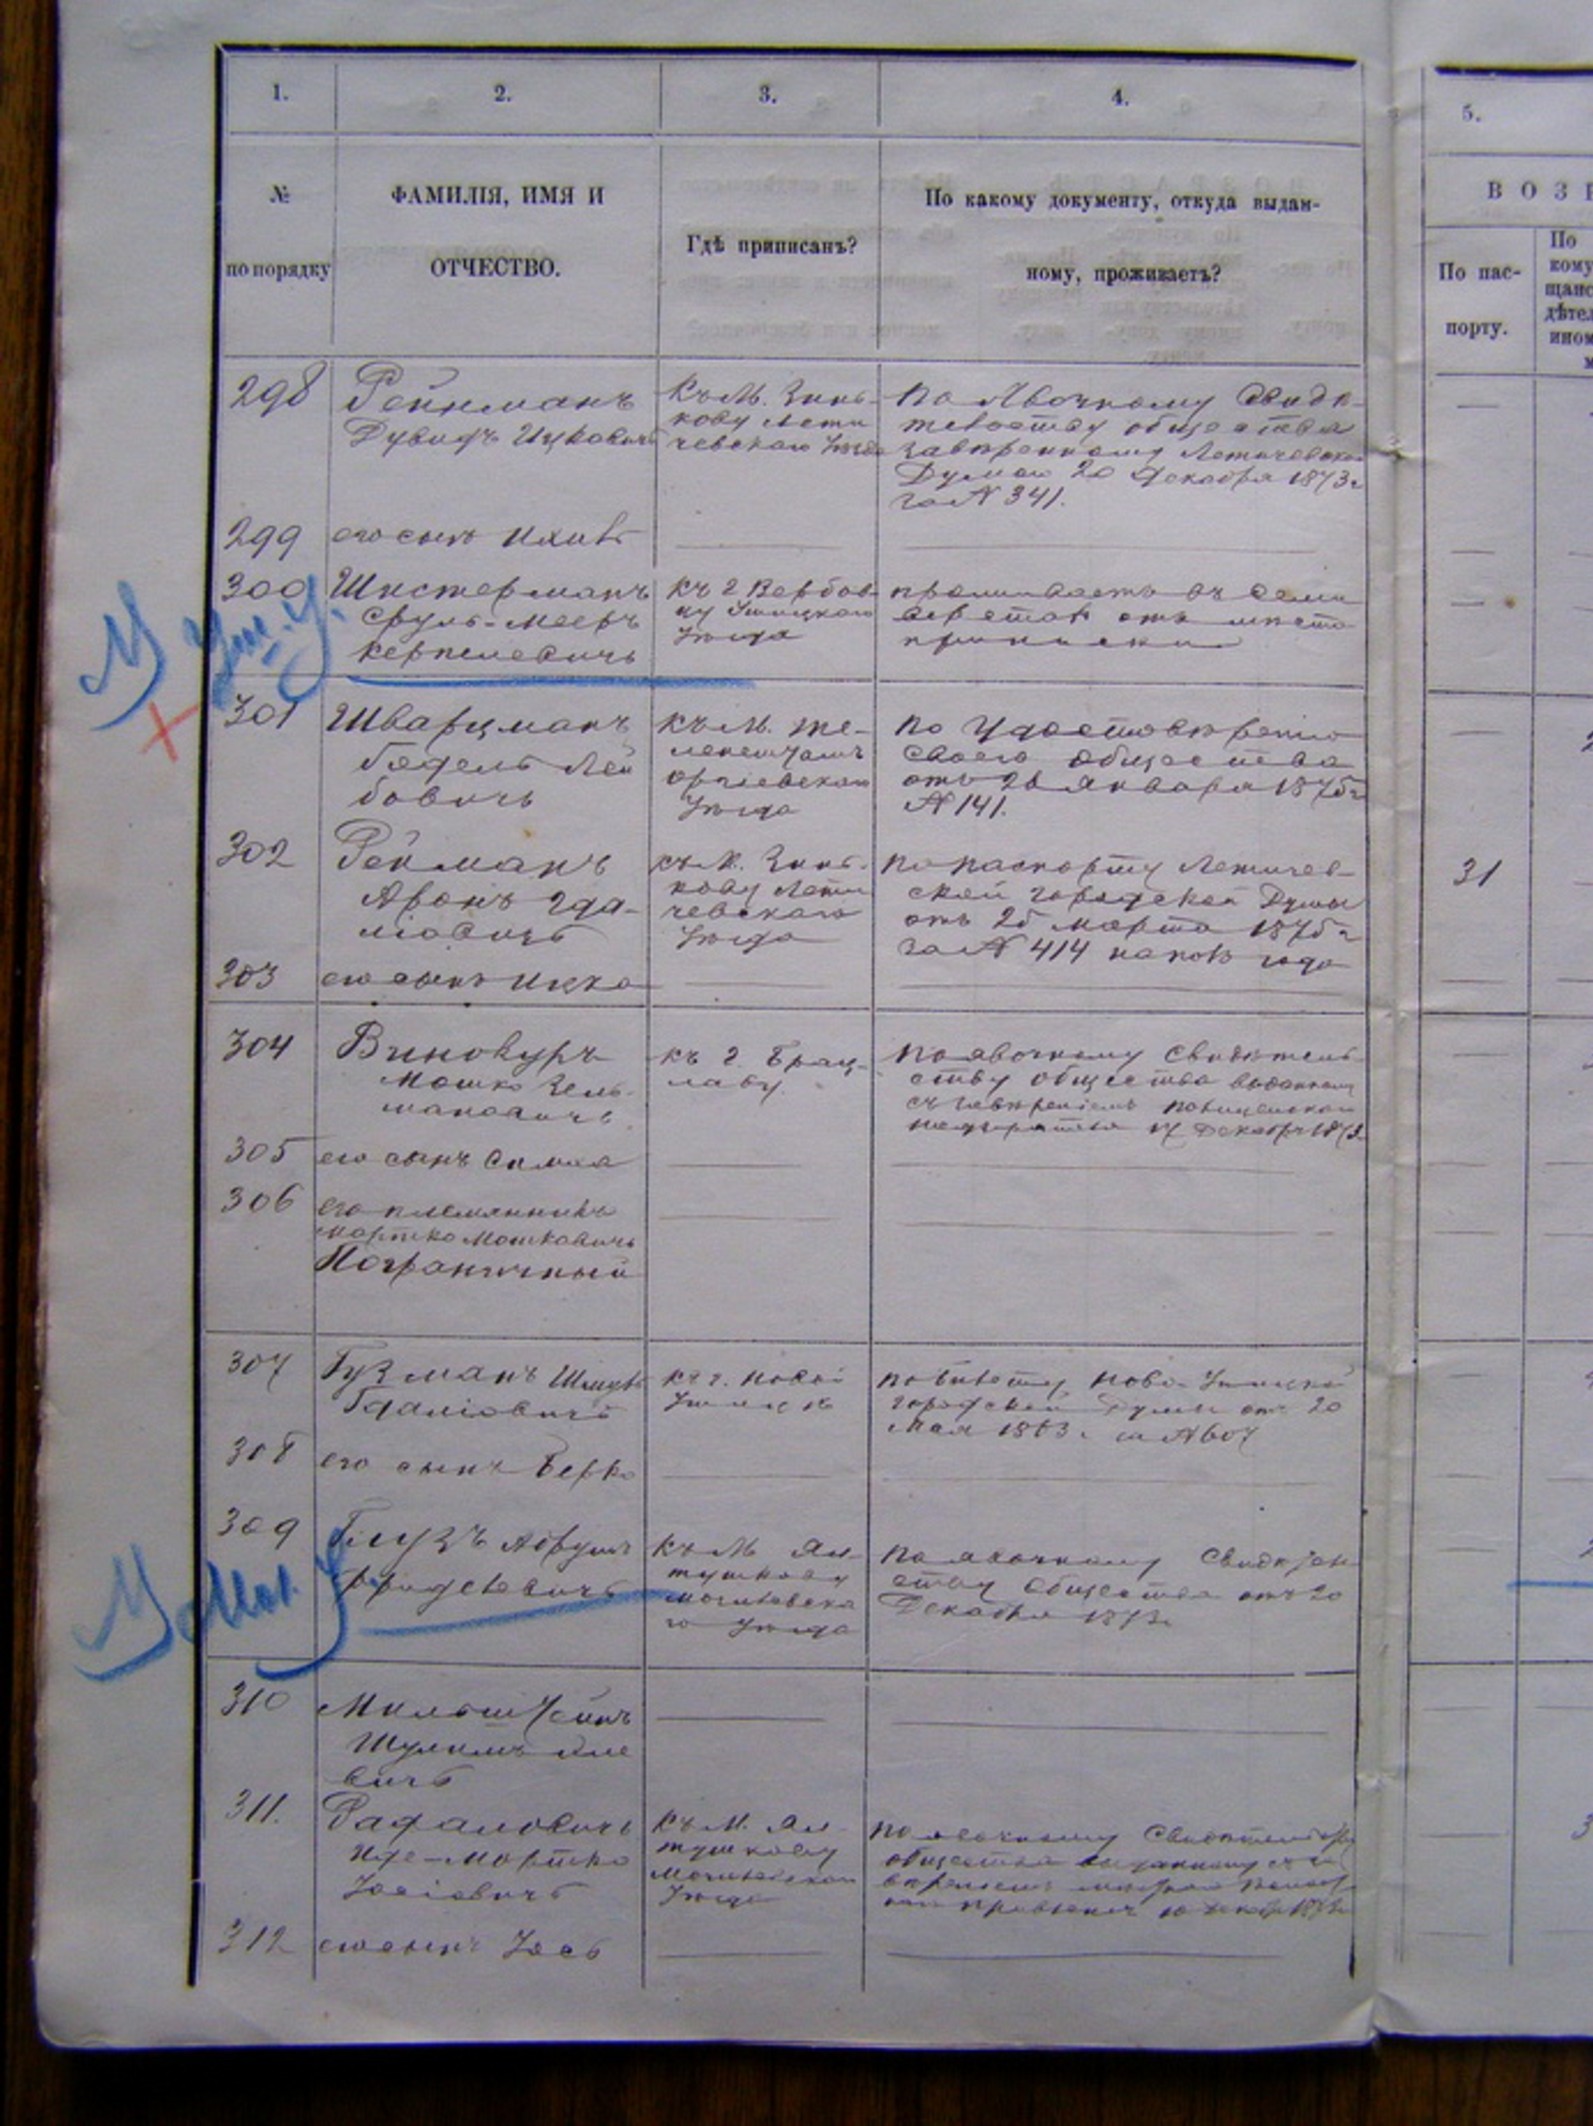 1.
2.
3.
4.
5.
№
по порядку
ФАМИЛІЯ, ИМЯ И
ОТЧЕСТВО.
Гдѣ приписанъ?
По какому документу, откуда выдан-
ному, проживаетъ?
ВОЗР
По пас-
порту.
По
кому
щанс
дѣтел
ином
298
Рейнманъ
Дувидъ Ицковичъ
Къ М. Зинь-
кову Лети
чевскаго Уѣзда
По Явочному Свидѣ-
тельству общества
завѣренному Летичевскою
Думою 20 Декабря 1873 г
за № 341.
299
его сынъ
300
Шистерманъ
Сруль-Мееръ
Керпелевичъ
къ г Вербов-
цу Ушицкаго
Уѣзда
проживаетъ въ семи
верстах отъ мѣста
приписки
У Уш. У.
301
Шварцманъ
Годель Лей
бовичъ
Къ М. Те-
ленештамъ
Оргѣевскаго
Уѣзда
По Удостовѣренію
своего общества
отъ 28 Января 1875 г
№ 141.
302
Рейманъ
Аронъ Гда-
ліовичъ
къ М. Зинь-
кову Лети
чевскаго
Уѣзда
По паспорту Летичев-
ской городской Думы
отъ 25 марта 1875 г
за № 414 на полъ года
31
303
его сынъ Ицко
304
Винокуръ
Мошко Зель-
мановичъ
къ г. Брац-
лаву.
По явочному Свидѣтель-
ству общества выданному
съ завѣреніемъ полицейскаго
17 Декабр 1873
305
его сынъ Симха
306
его племянникъ
Мортко Мошковичъ
Пограничный
307
Гузманъ Шмуль
Гдаліовичъ
къ г. Новой
Ушицѣ
по билету Ново-Ушицкой
городской Думы отъ 20
Мая 1863 г. за № 607
308
его сынъ Берко
309
Глузъ Абрумъ
Фроделевичъ
Къ М Ял-
тушкову
Могилевска
го Уѣзда
По явочному Свидѣтель
ству Общества отъ 20
Декабря 1873 г
У Мог. У
310
Мильштейнъ
Шулимъ
вичъ
311.
Рафаловичъ
Иде-Мортко
Іосіовичъ
Къ М. Ял-
тушкову
Могилевскаго
Уѣзда
По явочному Свидѣтельству
общества выданному съ за
вѣреніемъ
правленія 10 Декабр 1873
312
его сынъ Іось